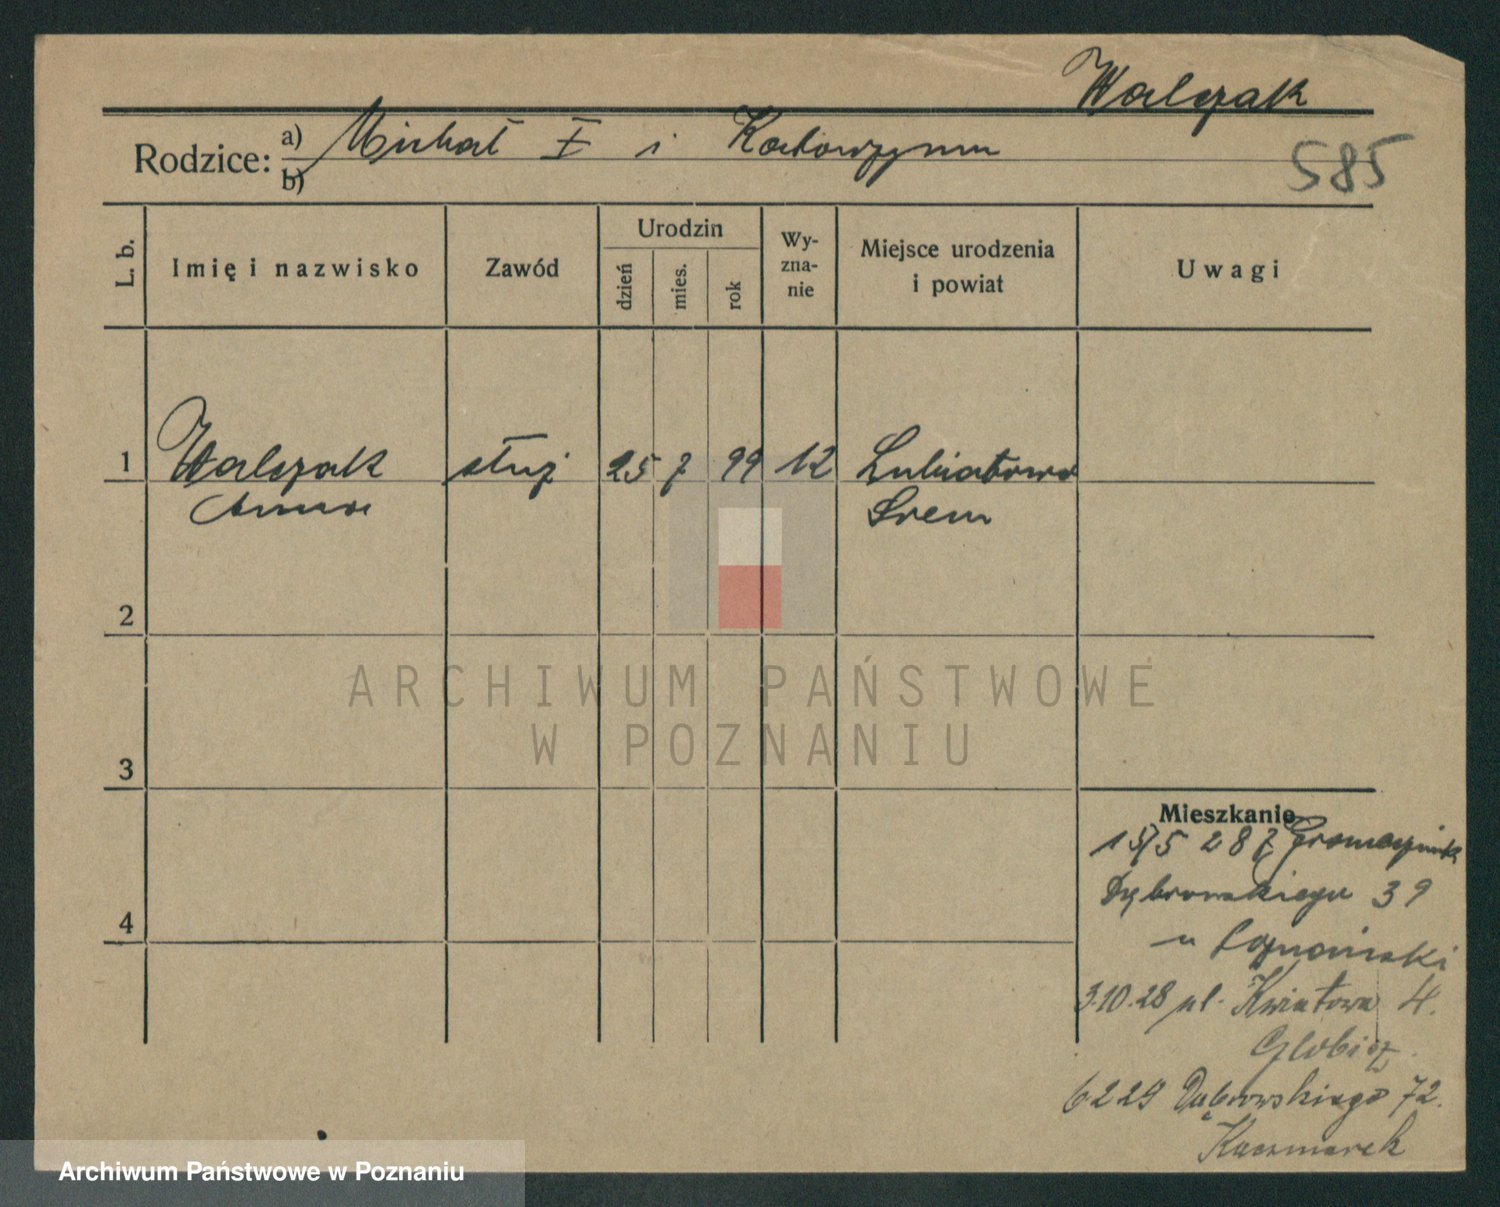 Walczak
Rodzice: a) Michał I i Katarzyna
b)
585
L. b.
Imię i nazwisko
Zawód
Urodzin
dzień
mies.
rok
Wy-
zna-
nie
Miejsce urodzenia
i powiat
Uwagi
1 Walczak służ 25 7 99 12 Lubiatowo
Anna Śrem
2
3
4
Mieszkanie
15/5 28 z
Dąbrowskiego 39
u Poznański
3.10.28 ul. Kwiatowa 4.
Globisz
6 2 29 Dąbrowskiego 72.
Kaczmarek
ARCHIWUM PAŃSTWOWE
W POZNANIU
Archiwum Państwowe w Poznaniu